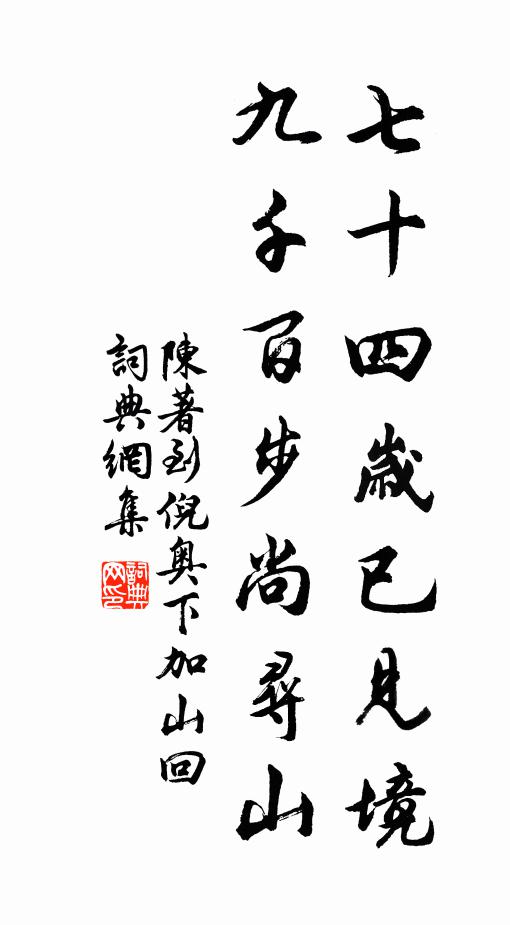 七十四歲已見境
九千百步尚尋山
陳著到倪奧下加山回
詞典網集
詞典网印